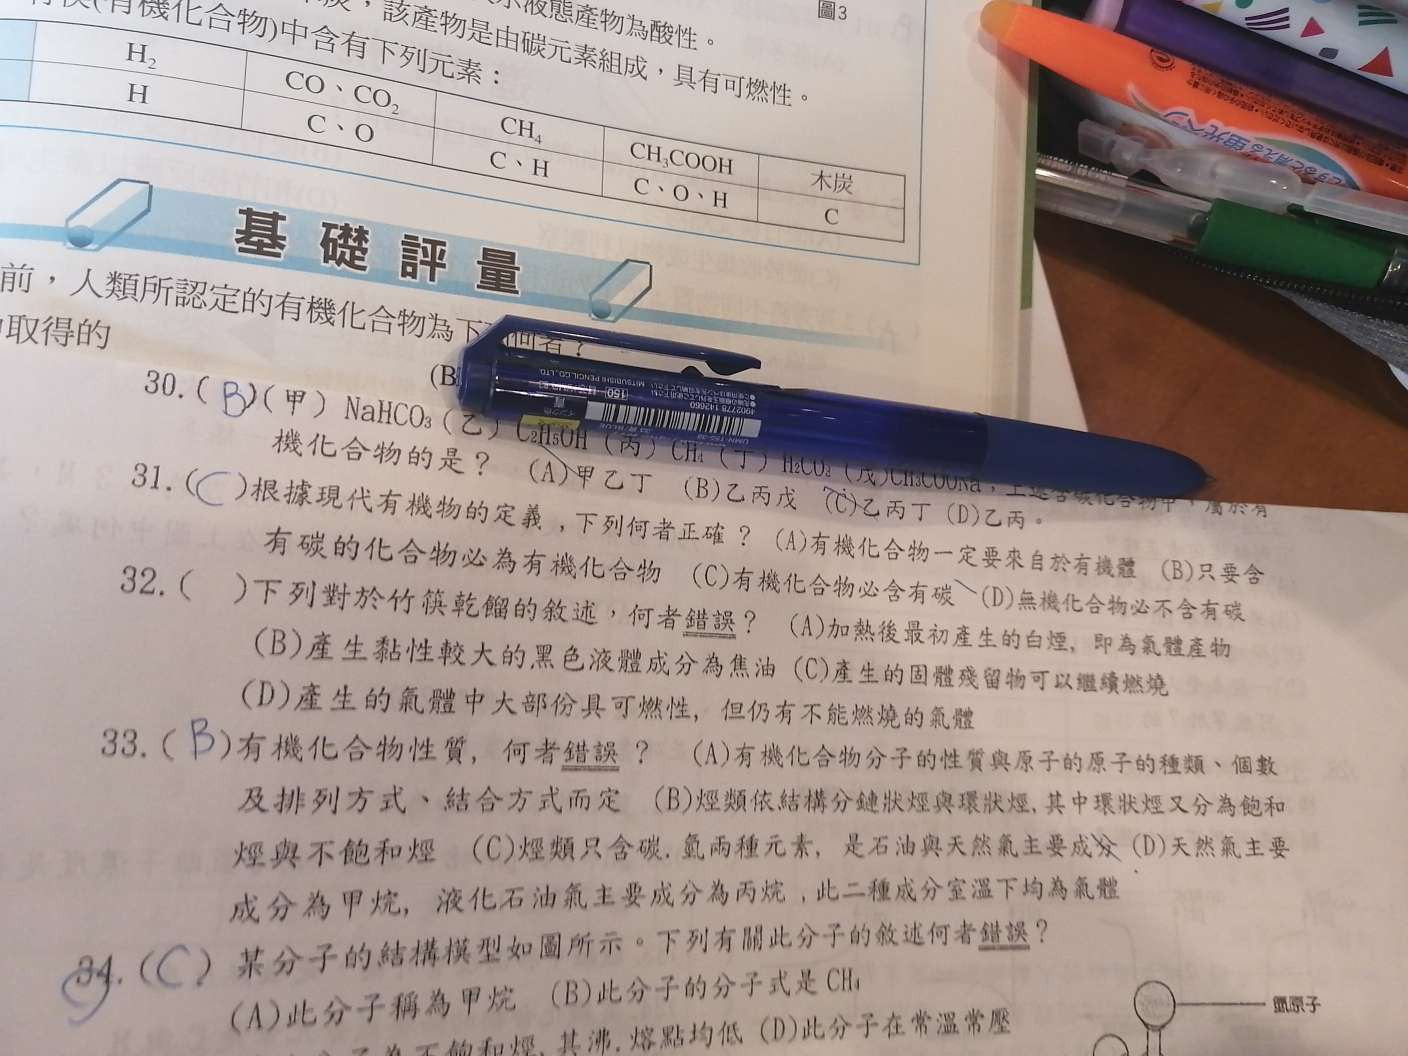 液態產物為酸性。
圖3
，該產物是由碳元素組成，具有可燃性。
(有機化合物)中含有下列元素：
H₂ CO、CO₂ CH₄ CH₃COOH 木炭
H C、O C、H C、O、H C
基礎評量
前，人類所認定的有機化合物為下列何者？
取得的
(B
30.(B)(甲) NaHCO₃(乙) C₂H₅OH (丙) CH₄ (丁) H₂CO₃ (戊)CH₃COONa，上述含碳化合物中，屬於有
機化合物的是？ (A)甲乙丁 (B)乙丙戊 (C)乙丙丁 (D)乙丙。
31.(C)根據現代有機物的定義,下列何者正確？ (A)有機化合物一定要來自於有機體 (B)只要含
有碳的化合物必為有機化合物 (C)有機化合物必含有碳 (D)無機化合物必不含有碳
32.( )下列對於竹筷乾餾的敘述，何者錯誤？ (A)加熱後最初產生的白煙，即為氣體產物
(B)產生黏性較大的黑色液體成分為焦油 (C)產生的固體殘留物可以繼續燃燒
(D)產生的氣體中大部份具可燃性，但仍有不能燃燒的氣體
33.(B)有機化合物性質，何者錯誤？ (A)有機化合物分子的性質與原子的原子的種類、個數
及排列方式、結合方式而定 (B)烴類依結構分鏈狀烴與環狀烴,其中環狀烴又分為飽和
烴與不飽和烴 (C)烴類只含碳.氫兩種元素，是石油與天然氣主要成分 (D)天然氣主要
成分為甲烷，液化石油氣主要成分為丙烷,此二種成分室溫下均為氣體
34.(C) 某分子的結構模型如圖所示。下列有關此分子的敘述何者錯誤？
(A)此分子稱為甲烷 (B)此分子的分子式是CH₄
為不飽和烴,其沸.熔點均低 (D)此分子在常溫常壓
氫原子
MITSUBISHI PENCIL CO., LTD.
4902778 142660